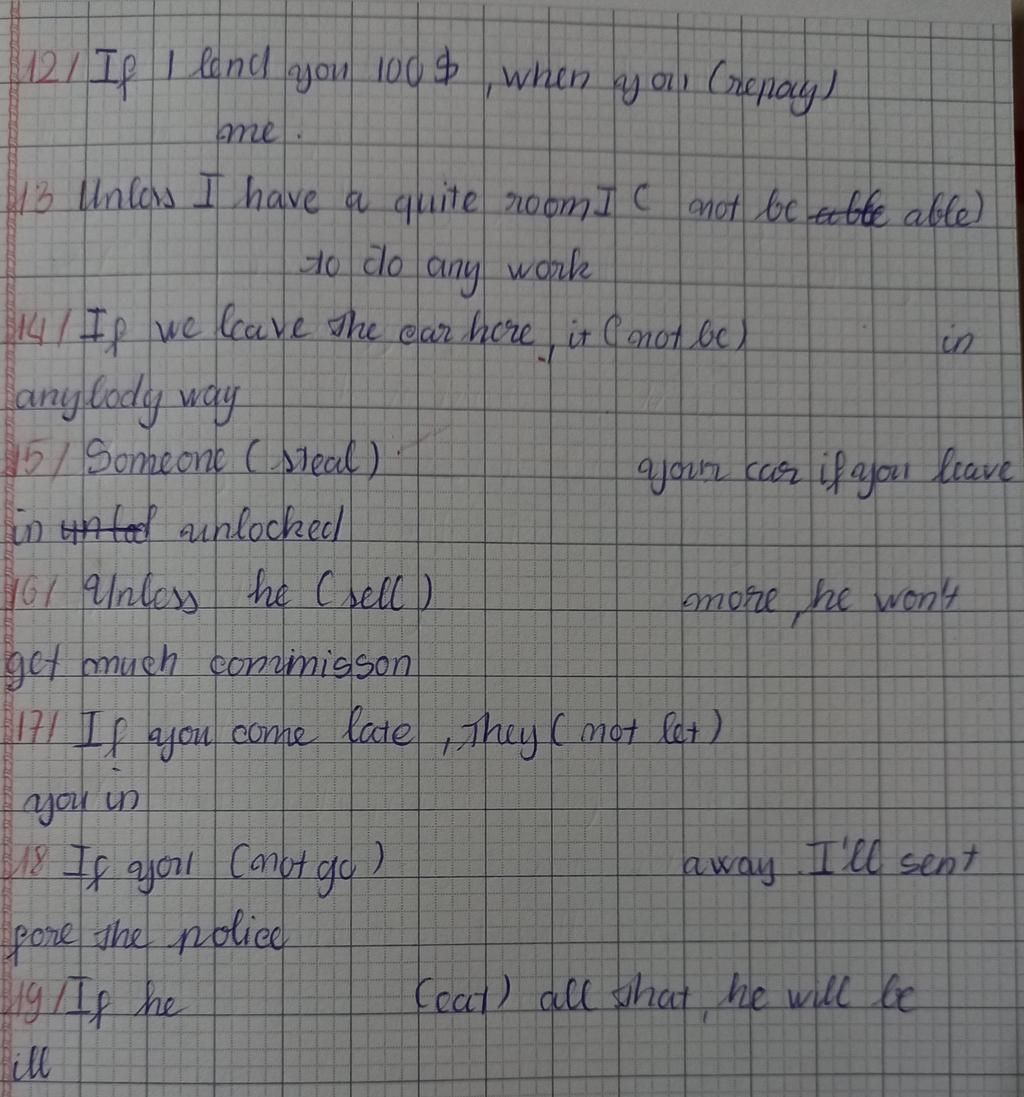 12/ If I lend you 100$, when you (repay)
me.
13 Unless I have a quite room I ( not be able able)
to do any work
14/ If we leave the car here, it (not be) in
anybody way
15/ Someone (steal) your car if you leave
in unlocked
16/ Unless he (sell) more, he won't
get much commisson
17/ If you come late, they (not let)
you in
18 If you (not go) away I'll sent
fore the police
19/ If he (eat) all that, he will be
ill